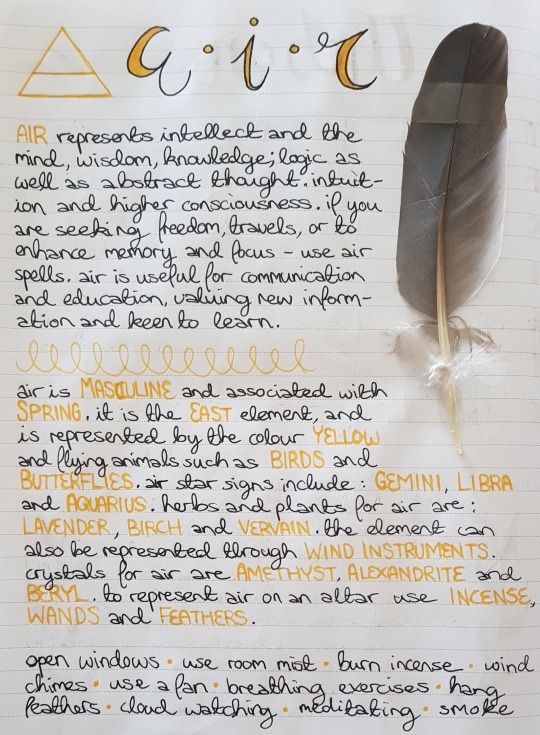 a·i·r
AIR represents intellect and the
mind, wisdom, knowledge; logic as
well as abstract thought. intuit-
ion and higher consciousness. if you
are seeking freedom, travels, or to
enhance memory and focus - use air
spells. air is useful for communication
and education, valuing new inform-
ation and keen to learn.
air is MASCULINE and associated with
SPRING. it is the EAST element, and
is represented by the colour YELLOW
and flying animals such as BIRDS and
BUTTERFLIES. air star signs include: GEMINI, LIBRA
and AQUARIUS. herbs and plants for air are:
LAVENDER, BIRCH and VERVAIN. the element can
also be represented through WIND INSTRUMENTS.
crystals for air are AMETHYST, ALEXANDRITE and
BERYL. to represent air on an altar use INCENSE,
WANDS and FEATHERS.
open windows · use room mist · burn incense · wind
chimes · use a fan · breathing exercises · hang
feathers · cloud watching · meditating · smoke